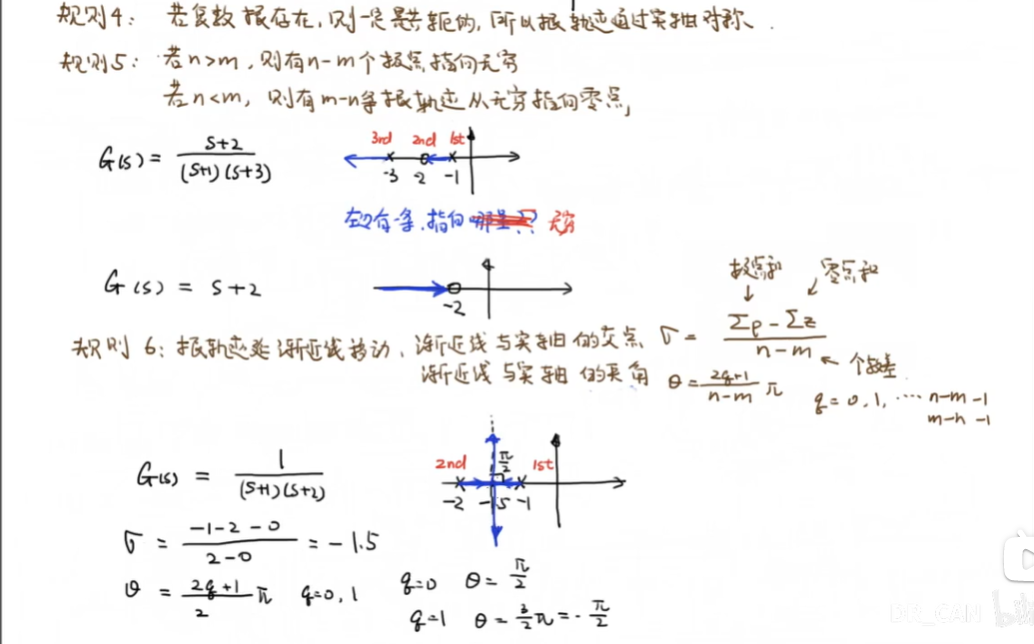 规则4: 若复数根存在,则一定是共轭的,所以根轨迹通过实轴对称.
规则5: 若n>m,则有n-m个极点指向无穷
若n<m,则有m-n条根轨迹从无穷指向零点,
G(s) = (s+2)/((s+1)(s+3))
3rd 2nd 1st
-3 -2 -1
左边有一条,指向 无穷
G(s) = s+2
-2
极点和 零点和
规则6: 根轨迹沿渐近线移动,渐近线与实轴的交点 σ = (Σp-Σz)/(n-m)
个数差
渐近线与实轴的夹角 θ = (2q+1)/(n-m) π q=0,1,⋯ n-m-1
m-n-1
G(s) = 1/((s+1)(s+2))
2nd π/2 1st
-2 -1.5 -1
σ = (-1-2-0)/(2-0) = -1.5
θ = (2q+1)/2 π q=0,1
q=0 θ=π/2
q=1 θ=3/2π=-π/2
DR_CAN